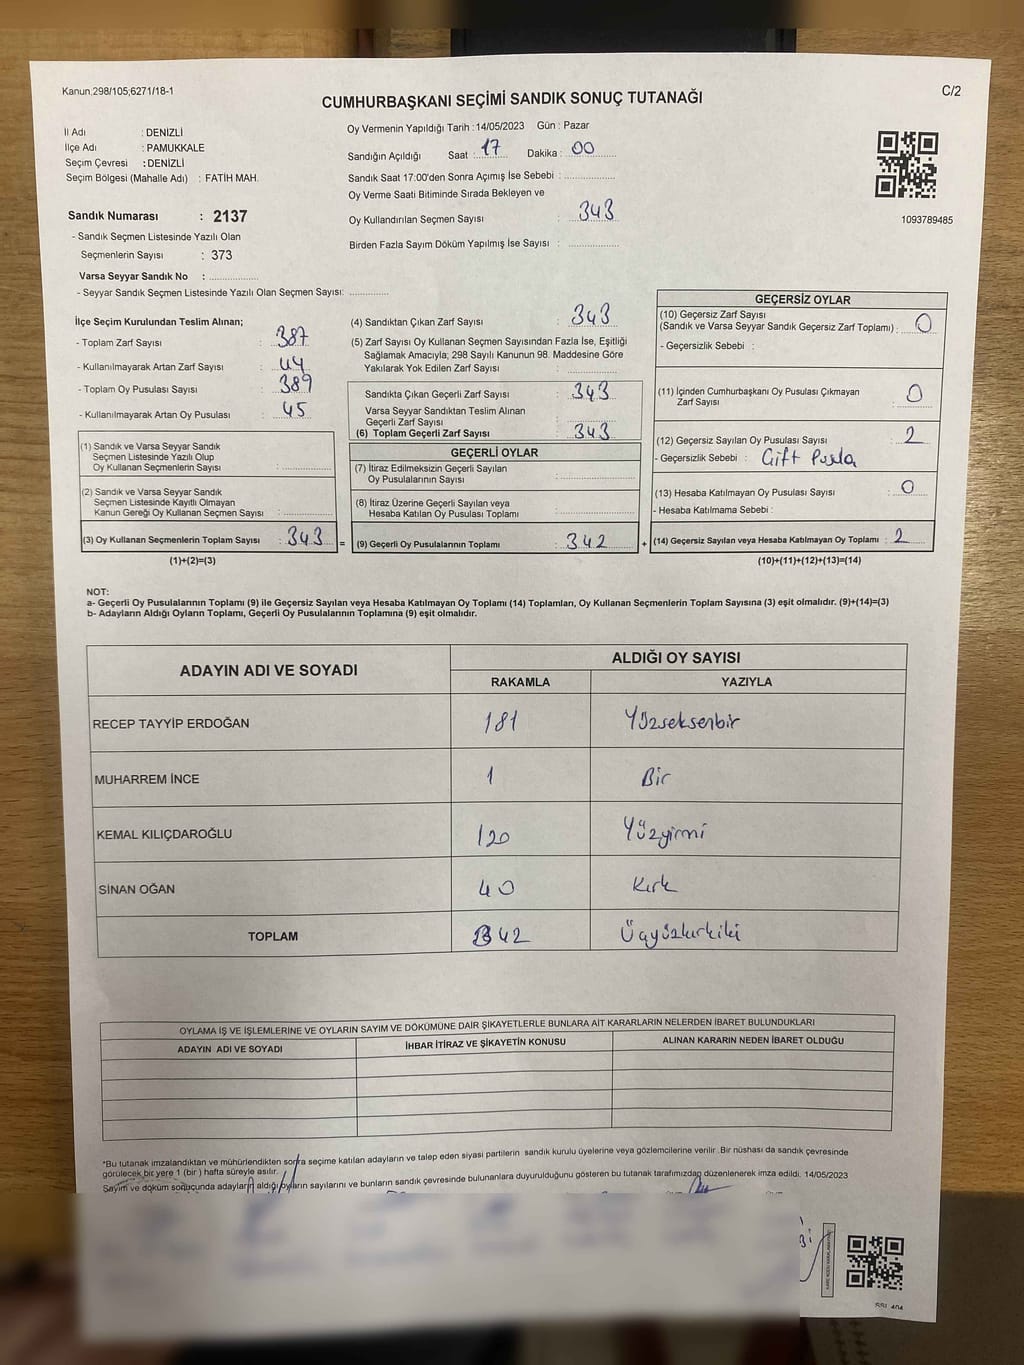 Kanun.298/105;6271/18-1
C/2
CUMHURBAŞKANI SEÇİMİ SANDIK SONUÇ TUTANAĞI
İl Adı : DENİZLİ
İlçe Adı : PAMUKKALE
Seçim Çevresi : DENİZLİ
Seçim Bölgesi (Mahalle Adı) : FATİH MAH.
Sandık Numarası : 2137
- Sandık Seçmen Listesinde Yazılı Olan
Seçmenlerin Sayısı : 373
Varsa Seyyar Sandık No :
- Seyyar Sandık Seçmen Listesinde Yazılı Olan Seçmen Sayısı:
Oy Vermenin Yapıldığı Tarih :14/05/2023 Gün : Pazar
Sandığın Açıldığı Saat : 17 Dakika : 00
Sandık Saat 17:00'den Sonra Açımış İse Sebebi :
Oy Verme Saati Bitiminde Sırada Bekleyen ve
Oy Kullandırılan Seçmen Sayısı : 343
Birden Fazla Sayım Döküm Yapılmış İse Sayısı :
1093789485
İlçe Seçim Kurulundan Teslim Alınan;
- Toplam Zarf Sayısı : 387
- Kullanılmayarak Artan Zarf Sayısı : 44
- Toplam Oy Pusulası Sayısı : 389
- Kullanılmayarak Artan Oy Pusulası : 45
(1) Sandık ve Varsa Seyyar Sandık
Seçmen Listesinde Yazılı Olup
Oy Kullanan Seçmenlerin Sayısı :
(2) Sandık ve Varsa Seyyar Sandık
Seçmen Listesinde Kayıtlı Olmayan
Kanun Gereği Oy Kullanan Seçmen Sayısı :
(3) Oy Kullanan Seçmenlerin Toplam Sayısı : 343 =
(1)+(2)=(3)
(4) Sandıktan Çıkan Zarf Sayısı : 343
(5) Zarf Sayısı Oy Kullanan Seçmen Sayısından Fazla İse, Eşitliği
Sağlamak Amacıyla; 298 Sayılı Kanunun 98. Maddesine Göre
Yakılarak Yok Edilen Zarf Sayısı :
Sandıkta Çıkan Geçerli Zarf Sayısı : 343
Varsa Seyyar Sandıktan Teslim Alınan
Geçerli Zarf Sayısı :
(6) Toplam Geçerli Zarf Sayısı : 343
GEÇERLİ OYLAR
(7) İtiraz Edilmeksizin Geçerli Sayılan
Oy Pusulasının Sayısı :
(8) İtiraz Üzerine Geçerli Sayılan veya
Hesaba Katılan Oy Pusulası Toplamı :
(9) Geçerli Oy Pusulalarının Toplamı : 342 +
GEÇERSİZ OYLAR
(10) Geçersiz Zarf Sayısı
(Sandık ve Varsa Seyyar Sandık Geçersiz Zarf Toplamı) : 0
- Geçersizlik Sebebi :
(11) İçinden Cumhurbaşkanı Oy Pusulası Çıkmayan
Zarf Sayısı : 0
(12) Geçersiz Sayılan Oy Pusulası Sayısı : 2
- Geçersizlik Sebebi : Çift Pusla
(13) Hesaba Katılmayan Oy Pusulası Sayısı : 0
- Hesaba Katılmama Sebebi :
(14) Geçersiz Sayılan veya Hesaba Katılmayan Oy Toplamı : 2
(10)+(11)+(12)+(13)=(14)
NOT:
a- Geçerli Oy Pusulalarının Toplamı (9) ile Geçersiz Sayılan veya Hesaba Katılmayan Oy Toplamı (14) Toplamları, Oy Kullanan Seçmenlerin Toplam Sayısına (3) eşit olmalıdır. (9)+(14)=(3)
b- Adayların Aldığı Oyların Toplamı, Geçerli Oy Pusulalarının Toplamına (9) eşit olmalıdır.
ADAYIN ADI VE SOYADI
ALDIĞI OY SAYISI
RAKAMLA YAZIYLA
RECEP TAYYİP ERDOĞAN 181 Yüzseksenbir
MUHARREM İNCE 1 Bir
KEMAL KILIÇDAROĞLU 120 Yüzyirmi
SİNAN OĞAN 40 Kırk
TOPLAM 342 Üçyüzkırkiki
OYLAMA İŞ VE İŞLEMLERİNE VE OYLARIN SAYIM VE DÖKÜMÜNE DAİR ŞİKAYETLERLE BUNLARA AİT KARARLARIN NELERDEN İBARET BULUNDUKLARI
ADAYIN ADI VE SOYADI İHBAR İTİRAZ VE ŞİKAYETİN KONUSU ALINAN KARARIN NEDEN İBARET OLDUĞU
*Bu tutanak imzalandıktan ve mühürlendikten sonra seçime katılan adayların ve talep eden siyasi partilerin sandık kurulu üyelerine veya gözlemcilerine verilir .Bir nüshası da sandık çevresinde
görülecek bir yere 1 (bir ) hafta süreyle asılır.
Sayım ve döküm sonucunda adayların aldığı oyların sayılarını ve bunların sandık çevresinde bulunanlara duyurulduğunu gösteren bu tutanak tarafımızdan düzenlenerek imza edildi. 14/05/2023